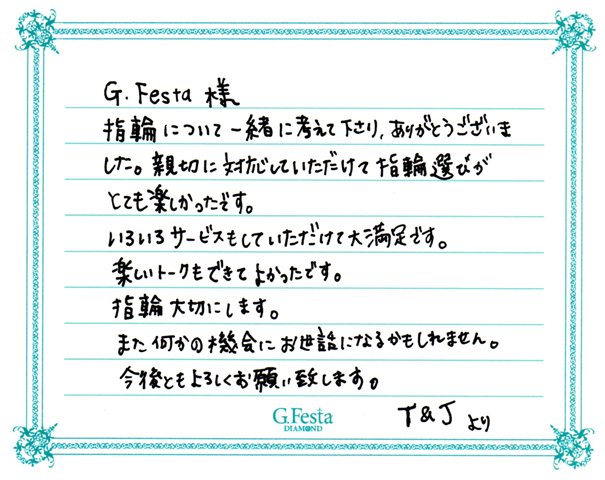 G.Festa 様
指輪について一緒に考えて下さり、ありがとうございま
した。親切に対応していただけて指輪選びが
とても楽しかったです。
いろいろサービスもしていただけて大満足です。
楽しいトークもできてよかったです。
指輪大切にします。
また何かの機会にお世話になるかもしれません。
今後ともよろしくお願い致します。
T&Jより
G.Festa
DIAMOND